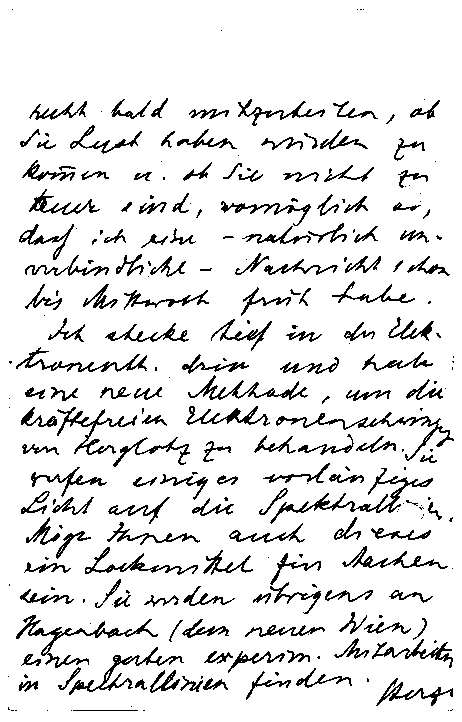 recht bald mitzuteilen, ob
Sie Lust haben würden zu
kom̄en u. ob Sie nicht zu
teuer sind, womöglich so,
daß ich eine – natürlich un-
verbindliche – Nachricht schon
bis Mittwoch früh habe.
Ich stecke tief in der Elek-
tronenth. drin und habe
eine neue Methode, um die
kräftefreien Elektronenschwing
von Herglotz zu behandeln. Sie
werfen einiges vorläufiges
Licht auf die Spektrallinien.
Möge Ihnen auch dieses
ein Lockmittel für Aachen
sein. Sie würden übrigens an
Hagenbach (dem neuen Wien)
einen guten experim. Mitarbeiter
in Spektrallinien finden.